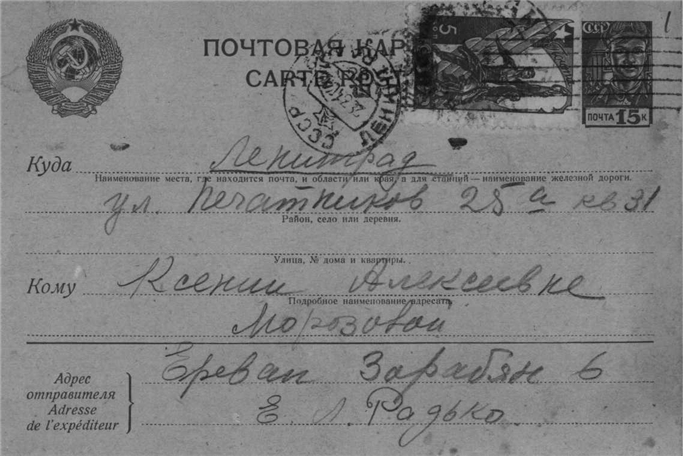 ПОЧТОВАЯ КАР
CARTE POST
5
СССР
ПОЧТА 15 К
СССР
ЛЕНИНГРАД
1
Куда Ленинград
Наименование места, где находится почта, и области или края, а для станций — наименование железной дороги.
ул. Печатников 25а кв 31
Район, село или деревня.
Улица, № дома и квартиры.
Кому Ксении Алексеевне
Подробное наименование адресата
Морозовой
Адрес
отправителя
Adresse
de l'expéditeur
Ереван Зарабян 6
Е. Л. Радько.